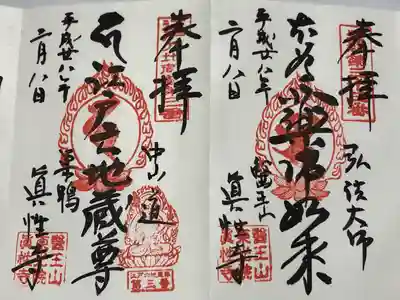 奉拝
弘法大師
本尊薬師如来
醫王山
眞性寺
平成廿八年
二月八日
醫王山
眞性寺
奉拝
中山道
江戸六地蔵尊
巣鴨
眞性寺
平成廿八年
二月八日
江戸六地蔵尊
第三番
醫王山
眞性寺